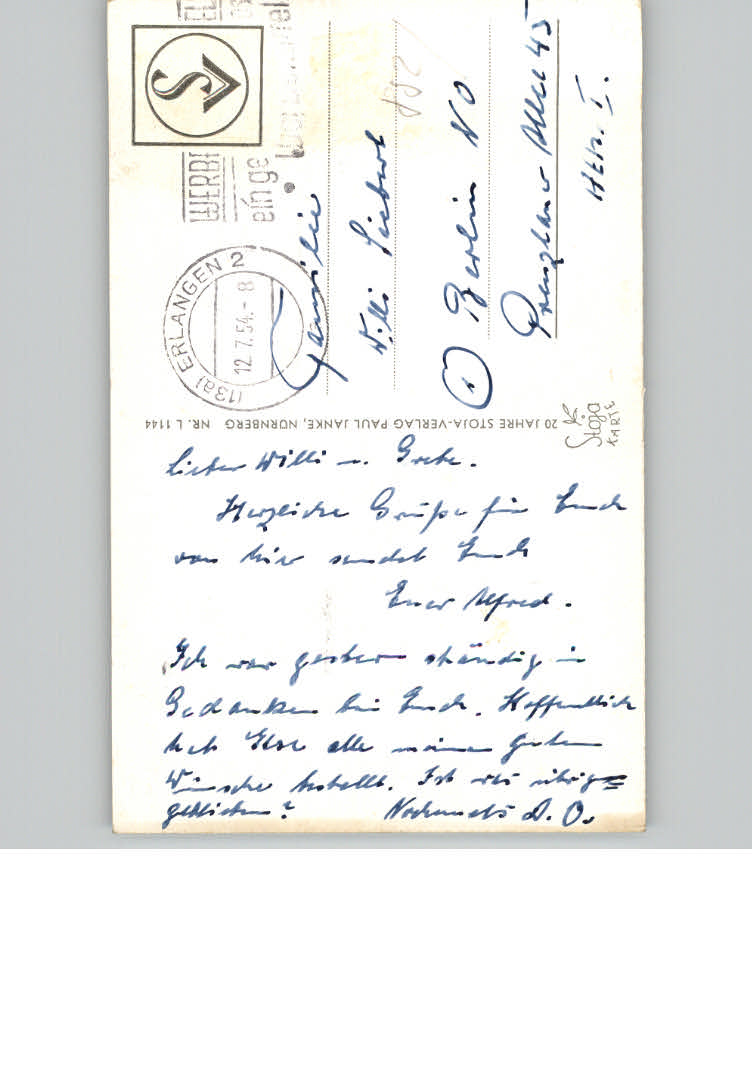 Lieber Willi u. Grete.
Herzliche Grüße für Euch
von hier sendet Euch
Euer Alfred.
Ich war gestern ständig in
Gedanken bei Euch. Hoffentlich
hat Ilse alle meine guten
Wünsche bestellt. Ist was übrig
geblieben? Nochmals D. O.
20 JAHRE STOJA-VERLAG PAUL JANKE, NÜRNBERG NR. L 1144
Stoja
KARTE
(13a) ERLANGEN 2
12.7.54.-8
WERB
einge
SV
Familie
Willi Siebert
(1) Berlin NO
Prenzlauer Allee 45